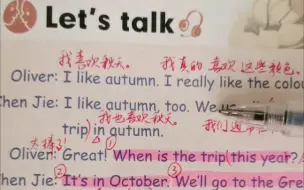 Let's talk
我喜欢秋天。 我真的 喜欢 这些颜色。
Oliver: I like autumn. I really like the colou
Chen Jie: I like autumn, too. We
我也喜欢秋天。 我们
trip in autumn.
太棒了! ①
Oliver: Great! When is the trip this year? A
② ③
Chen Jie: It's in October. We'll go to the Gre